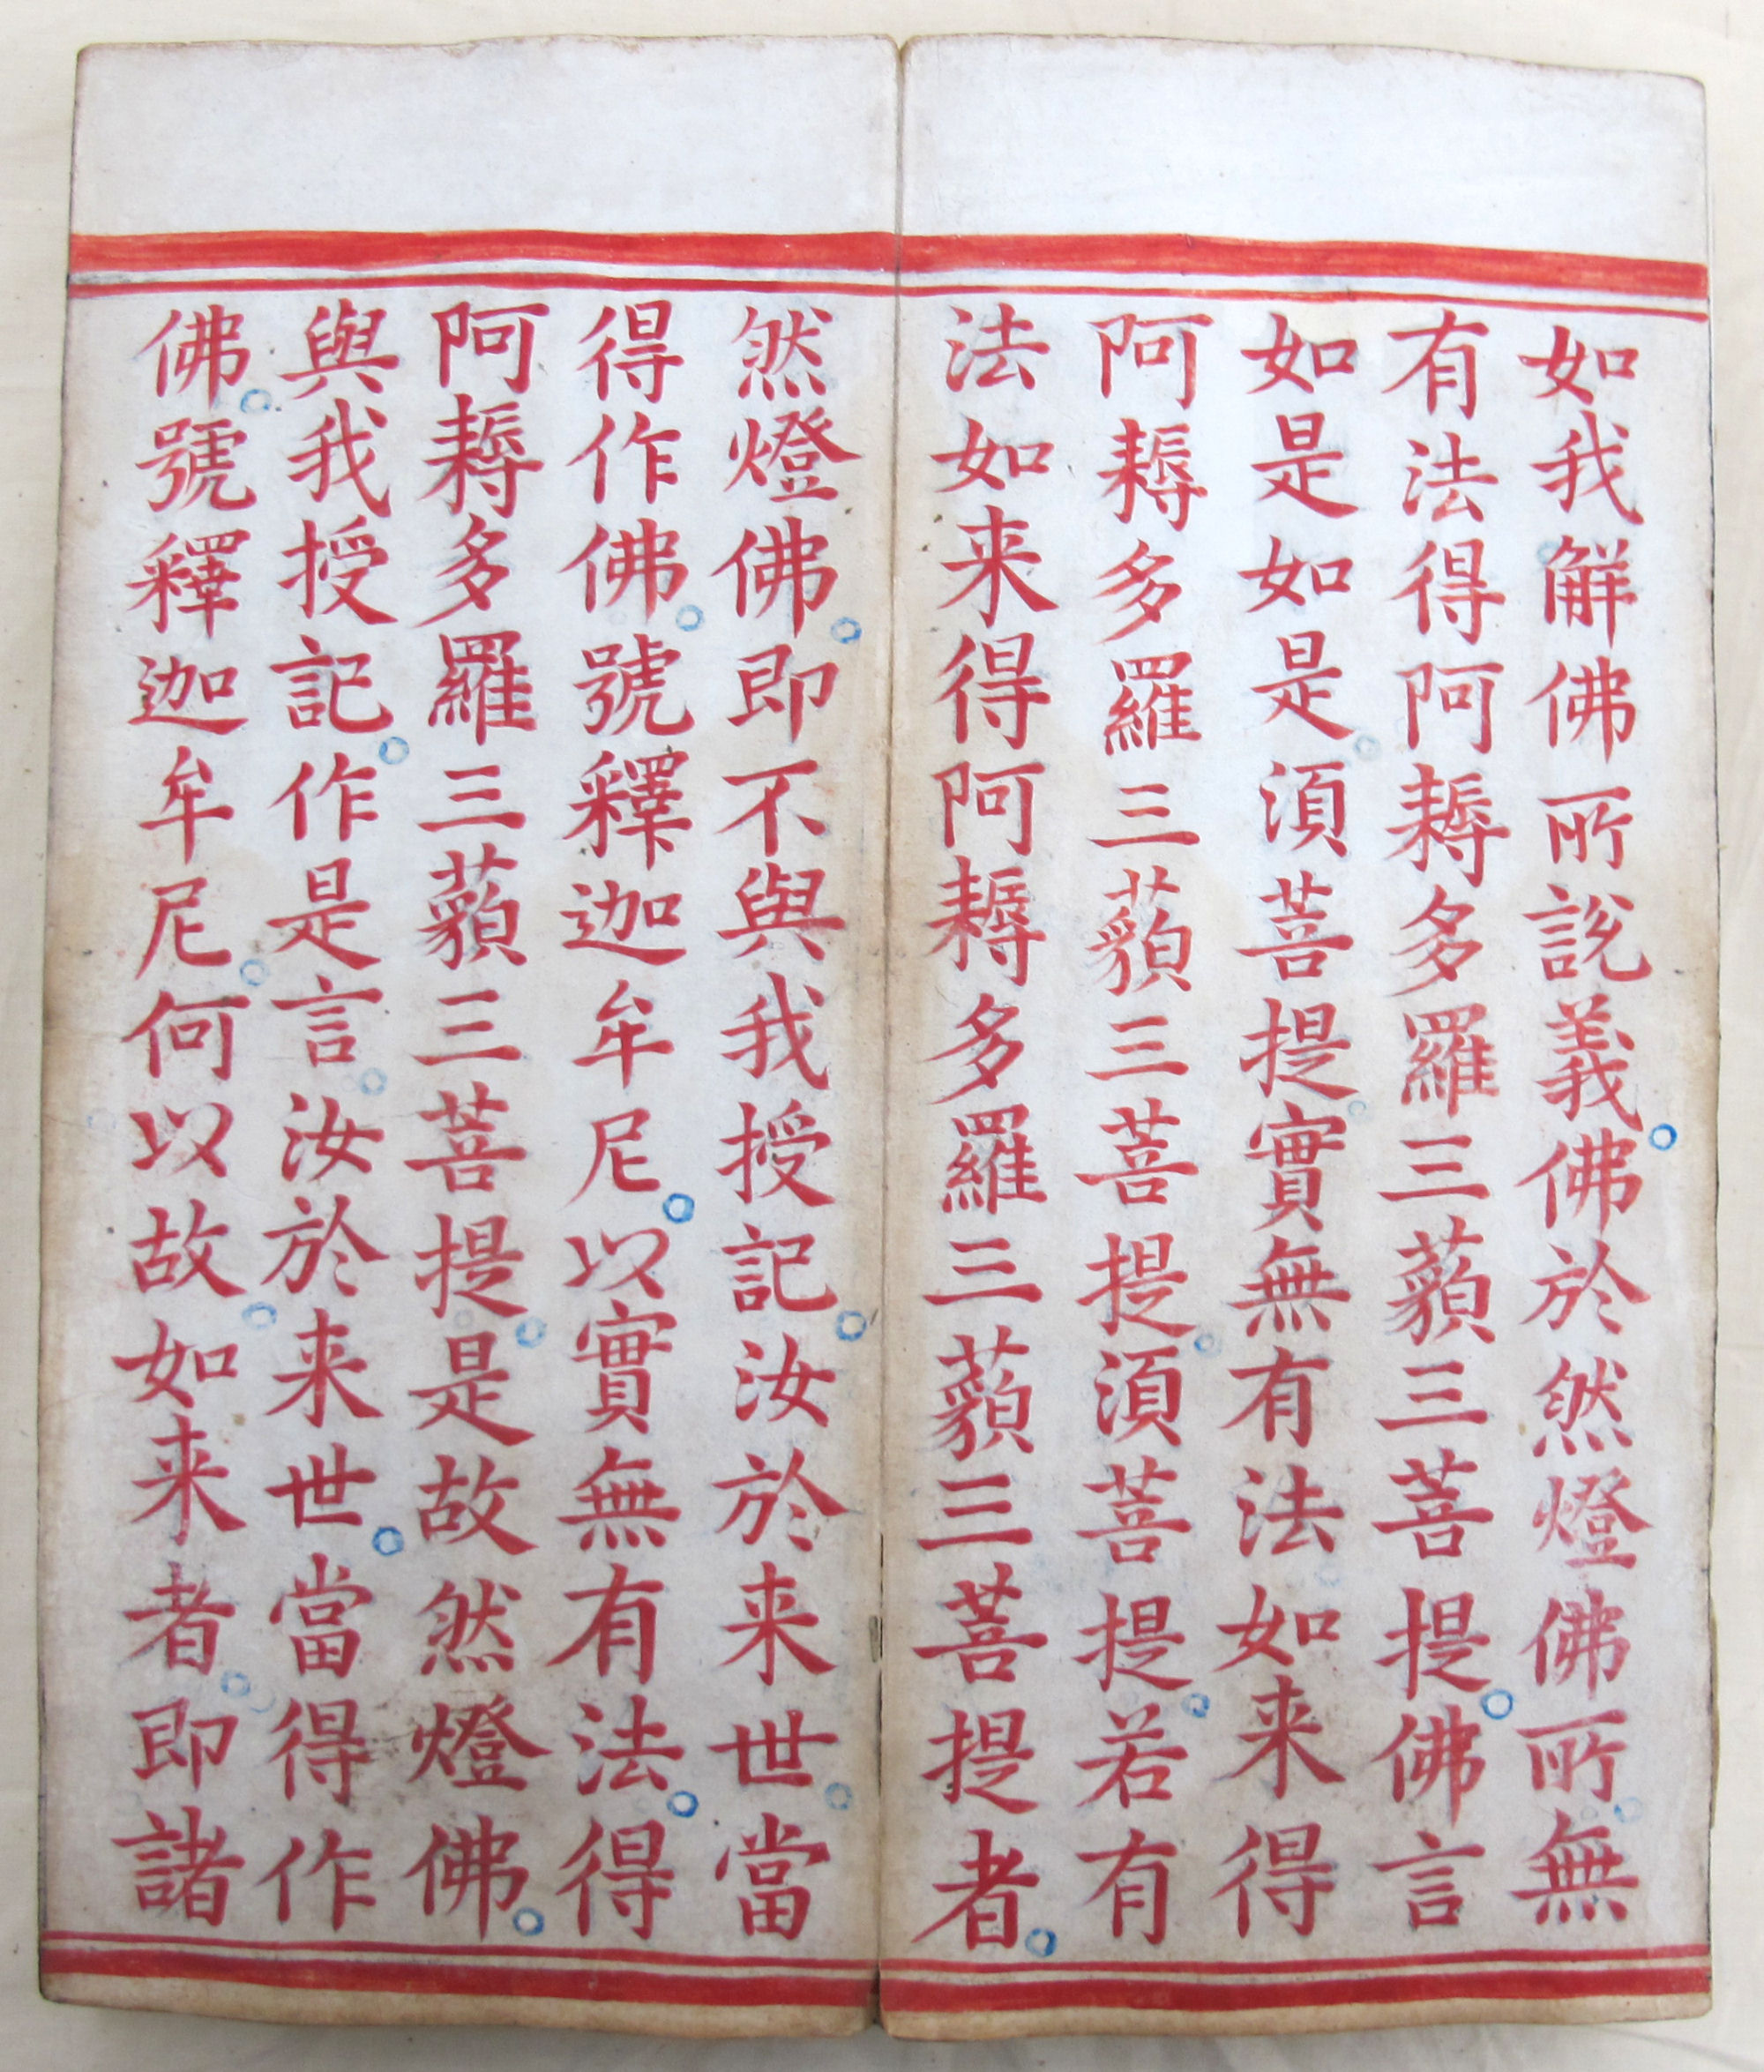 如我解佛所說義。佛於然燈佛所。無
有法得阿耨多羅三藐三菩提。佛言
如是如是。須菩提。實無有法。如来得
阿耨多羅三藐三菩提。須菩提。若有
法如来得阿耨多羅三藐三菩提者。
然燈佛。即不與我授記。汝於来世。當
得作佛。號釋迦牟尼。以實無有法。得
阿耨多羅三藐三菩提。是故然燈佛。
與我授記。作是言。汝於来世。當得作
佛。號釋迦牟尼。何以故。如来者。即諸